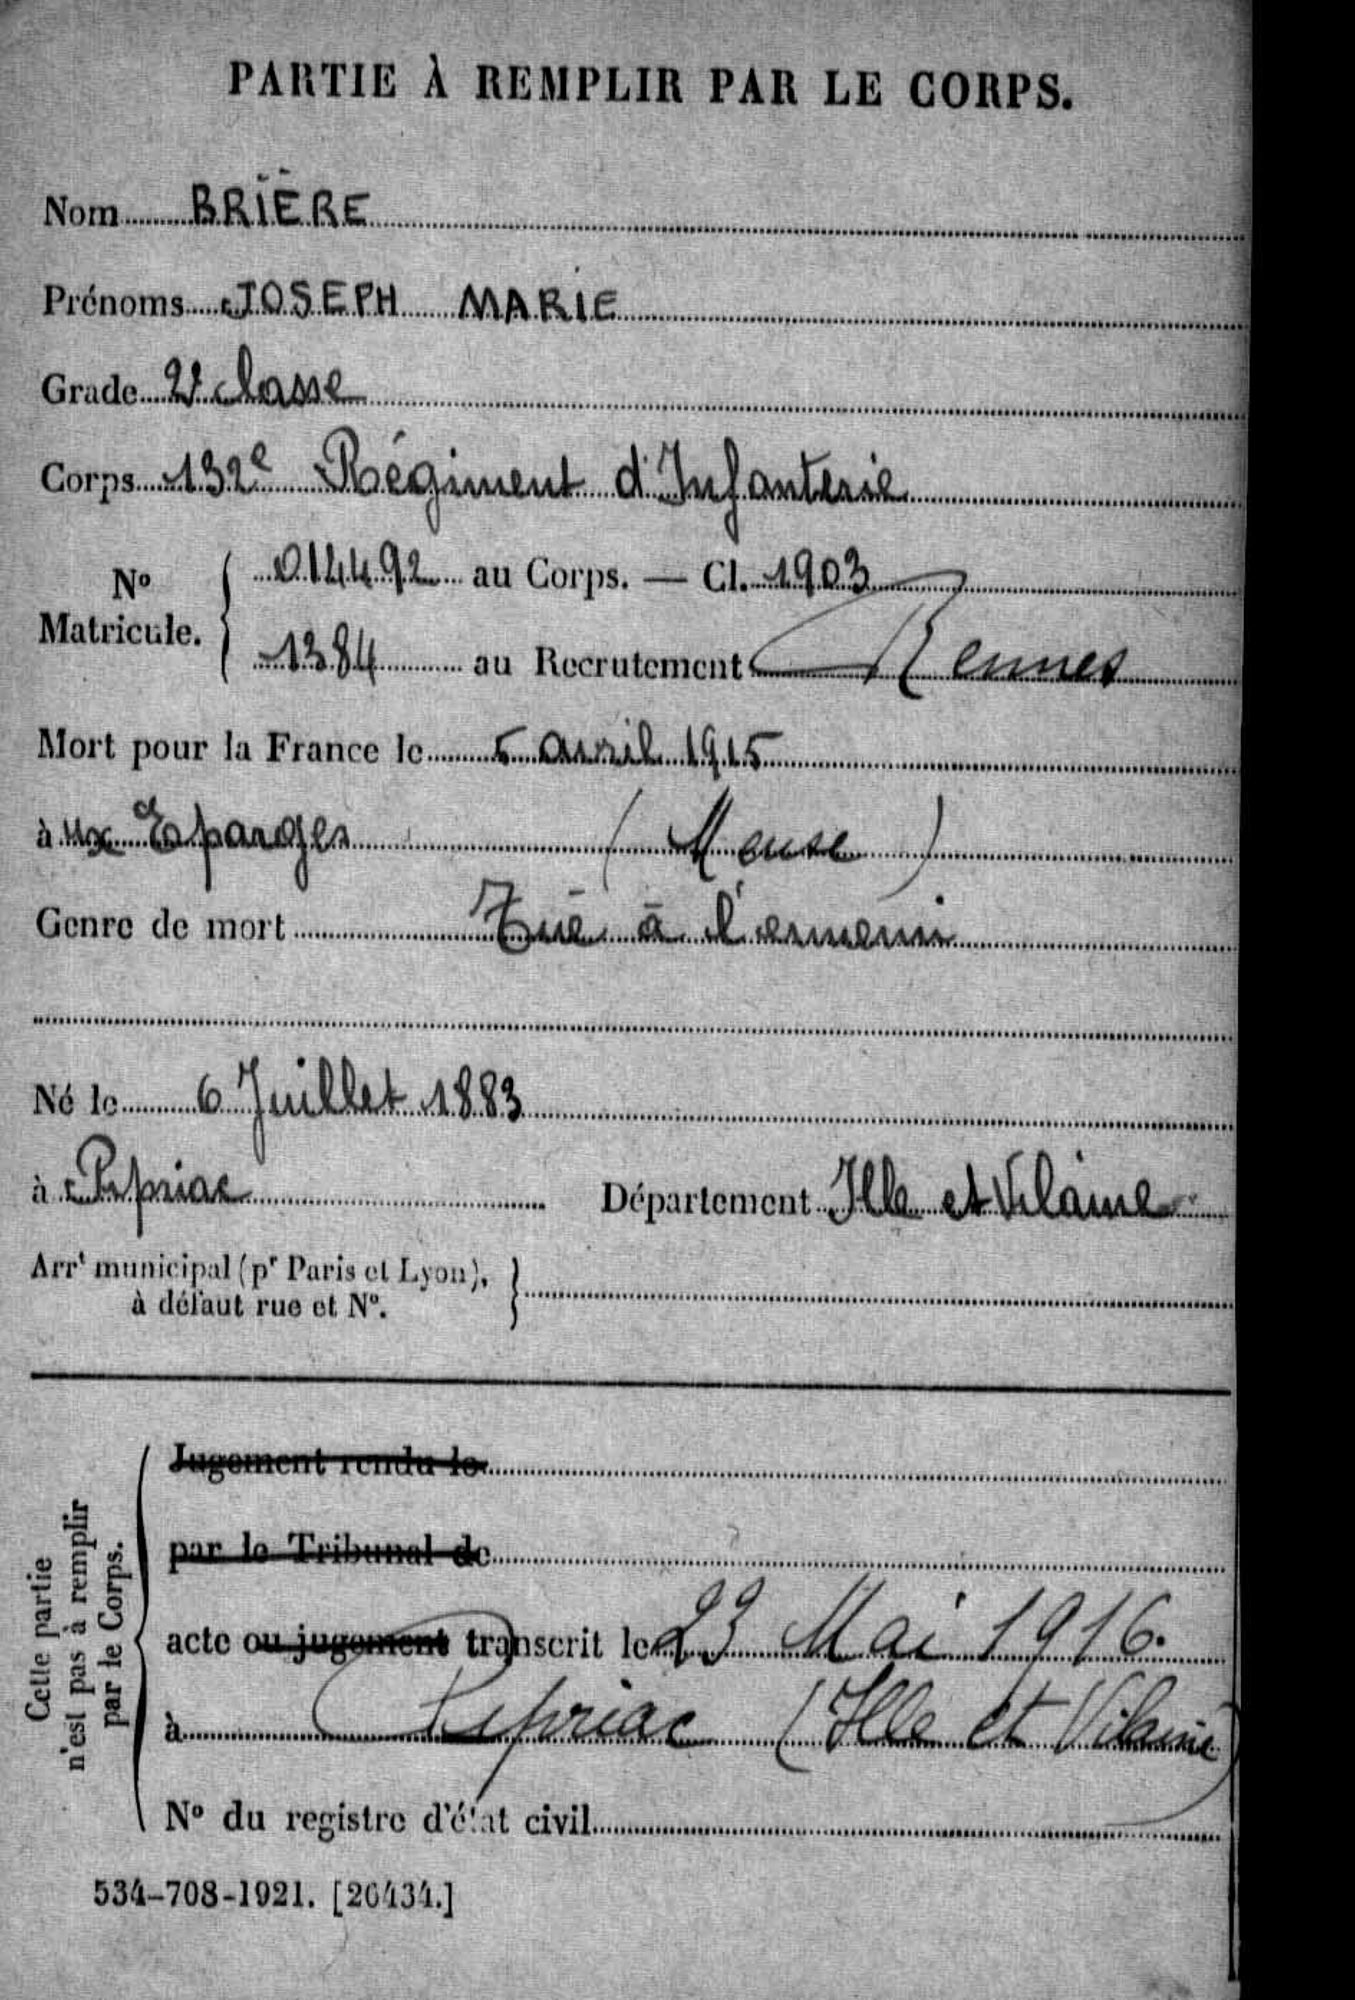 PARTIE À REMPLIR PAR LE CORPS.
Nom BRIÈRE
Prénoms JOSEPH MARIE
Grade 2e classe
Corps 132e Régiment d'Infanterie
No Matricule. 014492 au Corps. — Cl. 1903
1384 au Recrutement Rennes
Mort pour la France le 5 avril 1915
à ux Eparges (Meuse)
Genre de mort Tué à l'ennemi
Né le 6 Juillet 1883
à Pipriac Département Ille et Vilaine
Arrt municipal (pr Paris et Lyon),
à défaut rue et No.
Cette partie
n'est pas à remplir
par le Corps.
Jugement rendu le
par le Tribunal de
acte ou jugement transcrit le 23 Mai 1916.
à Pipriac (Ille et Vilaine)
No du registre d'état civil
534-708-1921. [26434.]